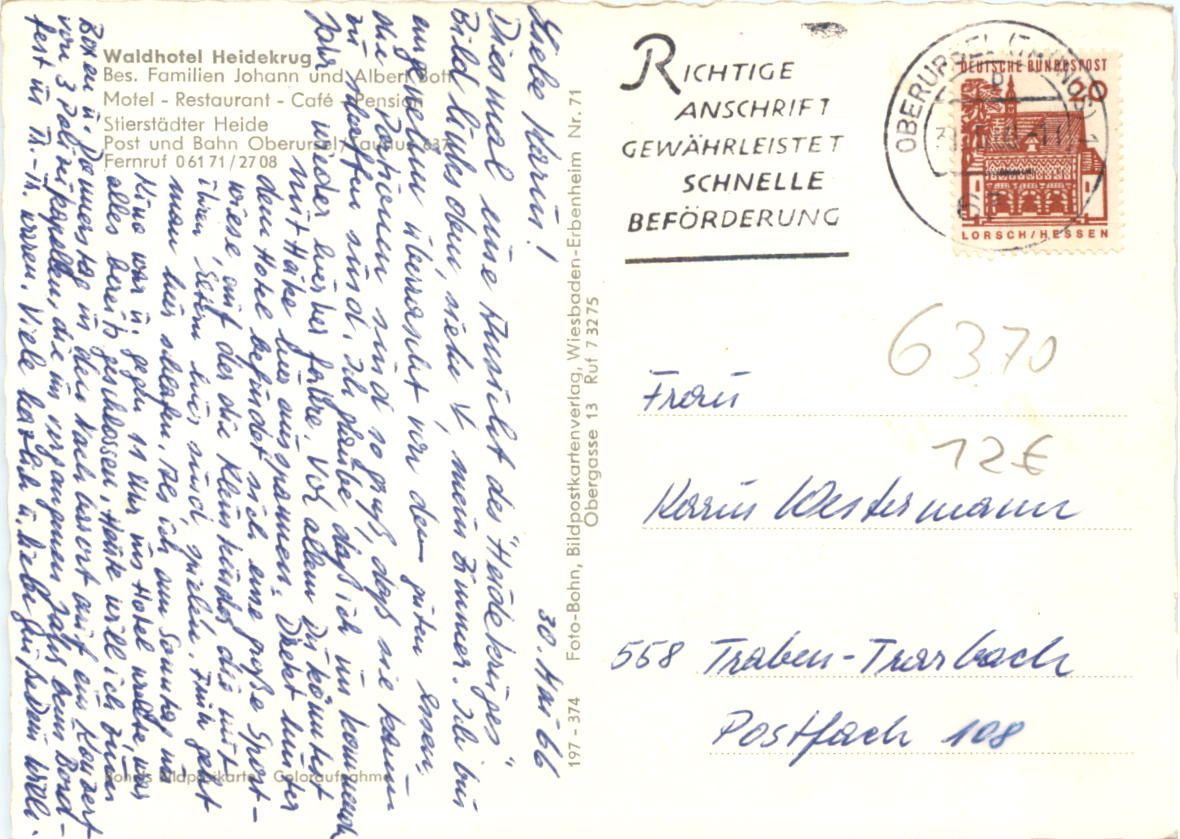 Waldhotel Heidekrug
Bes. Familien Johann und Albert Bott
Motel - Restaurant - Café - Pension
Stierstädter Heide
Post und Bahn Oberursel/Taunus 637
Fernruf 0 61 71 / 27 08
30. Mai 66
Liebe Karin!
Diesmal eine Ansicht des "Heidekruges"
Bild links oben, siehe ↓, mein Zimmer. Ich bin
angenehm überrascht von dem guten Essen,
die Portionen sind so groß, daß sie kaum
zu schaffen sind. Ich glaube, daß ich im kommenden
Jahr wieder hierher fahre. Vor allem Du könntest
mit Heike hier ausspannen. Direkt hinter
dem Hotel befindet sich eine große Sport-
wiese, auf der die Kleinkinder, die mit
ihren Eltern hier sind, spielen. Früh geht
man hier schlafen, als ich am Sonntag im
Kino war u. gegen 11 Uhr ins Hotel wollte, war
alles bereits geschlossen. Heute will ich zum
Boxen u. Donnerstag in den Nachbarort auf ein Konzert
von 3 Polizeikapellen, die im vergangenen Jahr beim
fest in T.-T. waren. Viele herzliche u. liebe Grüße Dein Willi.
Bohn's Bildpostkarte Coloraufnahme
197 - 374 Foto-Bohn, Bildpostkartenverlag, Wiesbaden-Erbenheim Nr. 71
Obergasse 13 Ruf 7 32 75
RICHTIGE
ANSCHRIFT
GEWÄHRLEISTET
SCHNELLE
BEFÖRDERUNG
OBERURSEL (TAUNUS) 1
DEUTSCHE BUNDESPOST
20
LORSCH/HESSEN
6370
12€
Frau
Karin Westermann
558 Traben-Trarbach
Postfach 108